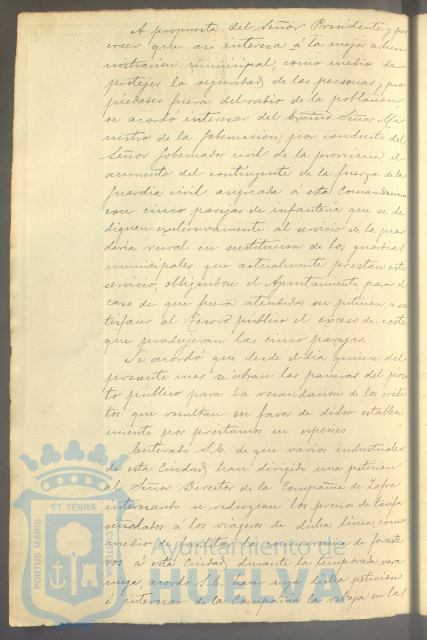 A propuesta del Señor Presidente y por
creer que asi interesa á la mejor admi
nistracion municipal, como medio de
protejer la seguridad de las personas y pro
piedades fuera del radio de la poblacion
se acordó interesar del Excmo. Señor Mi
nistro de la Gobernacion, por conducto del
Señor Gobernador civil de la provincia, el
aumento del contingente de la fuerza de la
Guardia civil asignada á esta Comandancia
con cinco parejas de infanteria que se de
diquen exclusivamente al servicio de la guar
deria rural en sustitucion de los guardias
municipales que actualmente prestan este
servicio, obligandose el Ayuntamiento para el
caso de que fuera atendida su peticion á sa
tisfacer al Tesoro público el exceso de coste
que produjeran las cinco parejas.
Se acordó que desde el dia quince del
presente mes se abran las paneras del posi
to público para la recaudacion de los credi
tos que resultan en favor de dicho estable
cimiento por préstamos en especies.
Enterado S.E. de que varios industriales
de esta Ciudad han dirigido una peticion
al Señor Director de la Compañia de Zafra
interesando se reduzcan los precios de tarifa
señalados á los viajeros de dicha linea, como
medio de facilitar la concurrencia de foraste
ros á esta Ciudad durante la temporada vera
niega, acordó S.E. hacer suya dicha peticion
é interesar de la Compañia la rebaja en las
PORTUS MARIS ET TERRÆ CUSTODIA
Ayuntamiento de
HUELVA